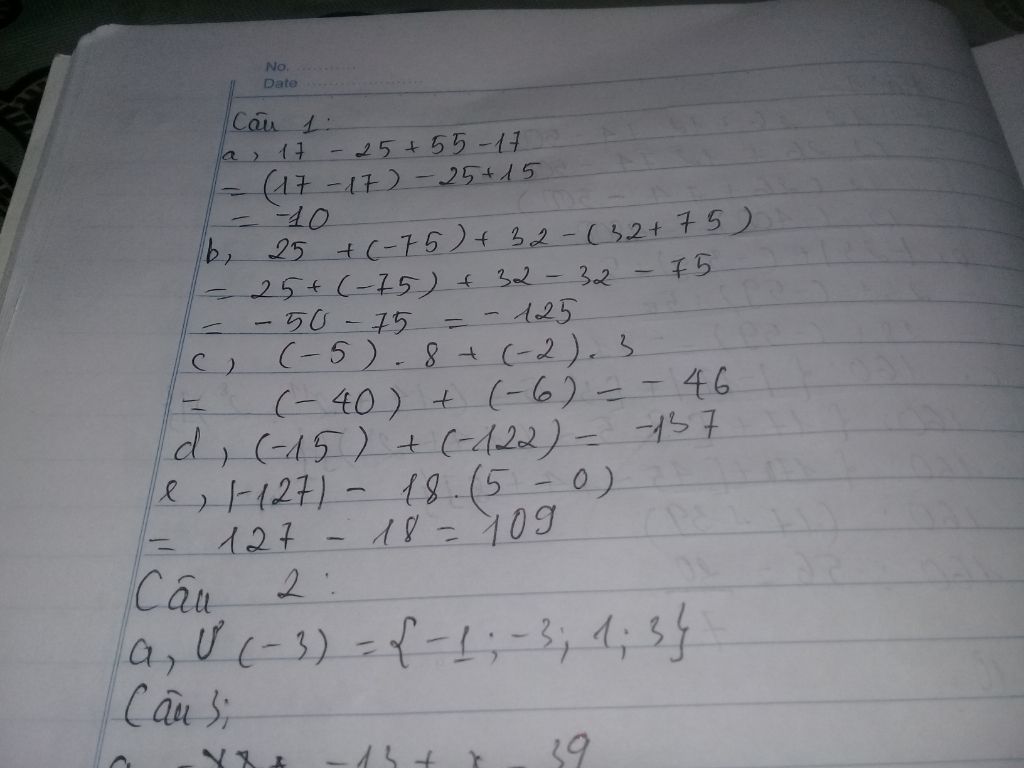 No. ..............
Date ..............................
Câu 1:
a, 17 - 25 + 55 - 17
= (17 - 17) - 25 + 15
= -10
b, 25 + (-75) + 32 - (32 + 75)
= 25 + (-75) + 32 - 32 - 75
= - 50 - 75 = - 125
c, (-5) . 8 + (-2) . 3
= (-40) + (-6) = - 46
d, (-15) + (-122) = -137
e, |-127| - 18 . (5 - 0)
= 127 - 18 = 109
Câu 2:
a, Ư (-3) = {-1; -3; 1; 3}
Câu 3;
- 13 + x - 39